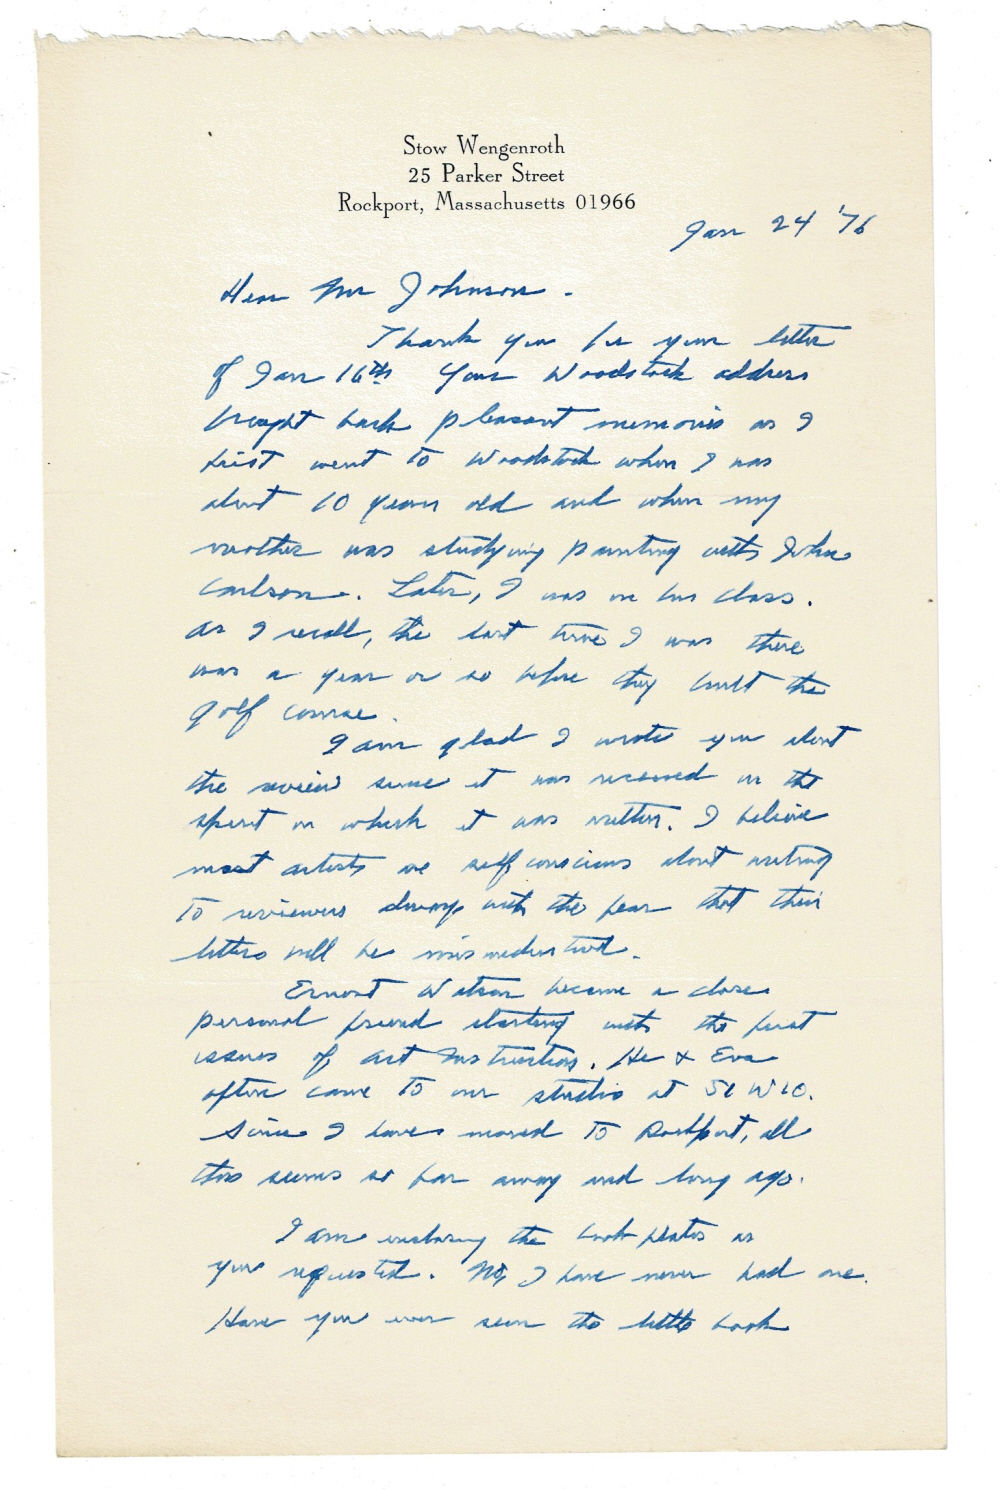 Stow Wengenroth
25 Parker Street
Rockport, Massachusetts 01966
Jan 24 '76
Dear Mr Johnson.
Thank you for your letter
of Jan 16th Your Woodstock address
brought back pleasant memories as I
first went to Woodstock when I was
about 10 years old and when my
mother was studying painting with John
Carlson. Later, I was in his class.
As I recall, the last time I was there
was a year or so before they built the
golf course.
I am glad I wrote you about
the review since it was received in the
spirit in which it was written. I believe
most artists are self conscious about writing
to reviewers always with the fear that their
letters will be misunderstood.
Ernest Watson became a close
personal friend starting with the first
issues of Art Instruction. He & Eva
often came to our studio at 51 W 10.
Since I have moved to Rockport, all
this seems so far away and long ago.
I am enclosing the book plates as
you requested. No, I have never had one.
Have you ever seen the little book